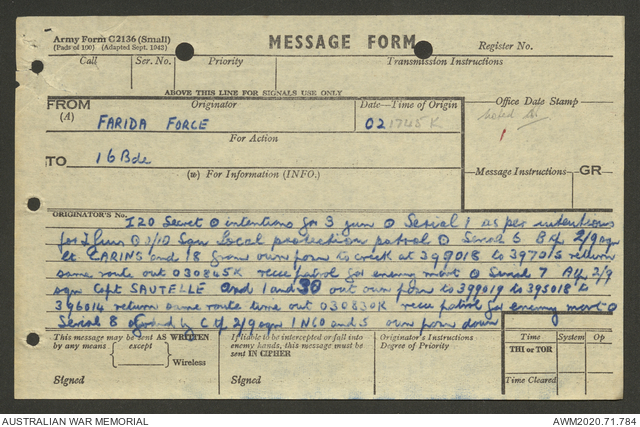 Army Form C2136 (Small)
(Pads of 100) (Adapted Sept. 1943)
MESSAGE FORM
Register No.
Call Ser. No. Priority Transmission Instructions
ABOVE THIS LINE FOR SIGNALS USE ONLY
FROM (A) Originator Date—Time of Origin Office Date Stamp
FARIDA FORCE 021745K
For Action
TO 16 Bde
(w) For Information (INFO.) Message Instructions GR
ORIGINATOR'S No.
I20 Secret intentions for 3 June Serial 1 as per intentions
for 2 June Sqn Local protection patrol Serial 6 2/9 sqn
Lt CARING and 18 from own posn to creek at 399018 to 397015 return
same route out 030845K recce patrol for enemy mort Serial 7 2/9
sqn Capt SAVTELLE and 1 and 30 out own posn to 399019 to 395018 to
396014 return same route time out 030830K recce patrol for enemy mort
Serial 8 C 2/9 sqn 1 NCO and 5 own posn down
This message may be sent AS WRITTEN
by any means except
Wireless
If liable to be intercepted or fall into
enemy hands, this message must be
sent IN CIPHER
Originator's Instructions
Degree of Priority
Time System Op
THI or TOR
Time Cleared
Signed Signed
AUSTRALIAN WAR MEMORIAL AWM2020.71.784